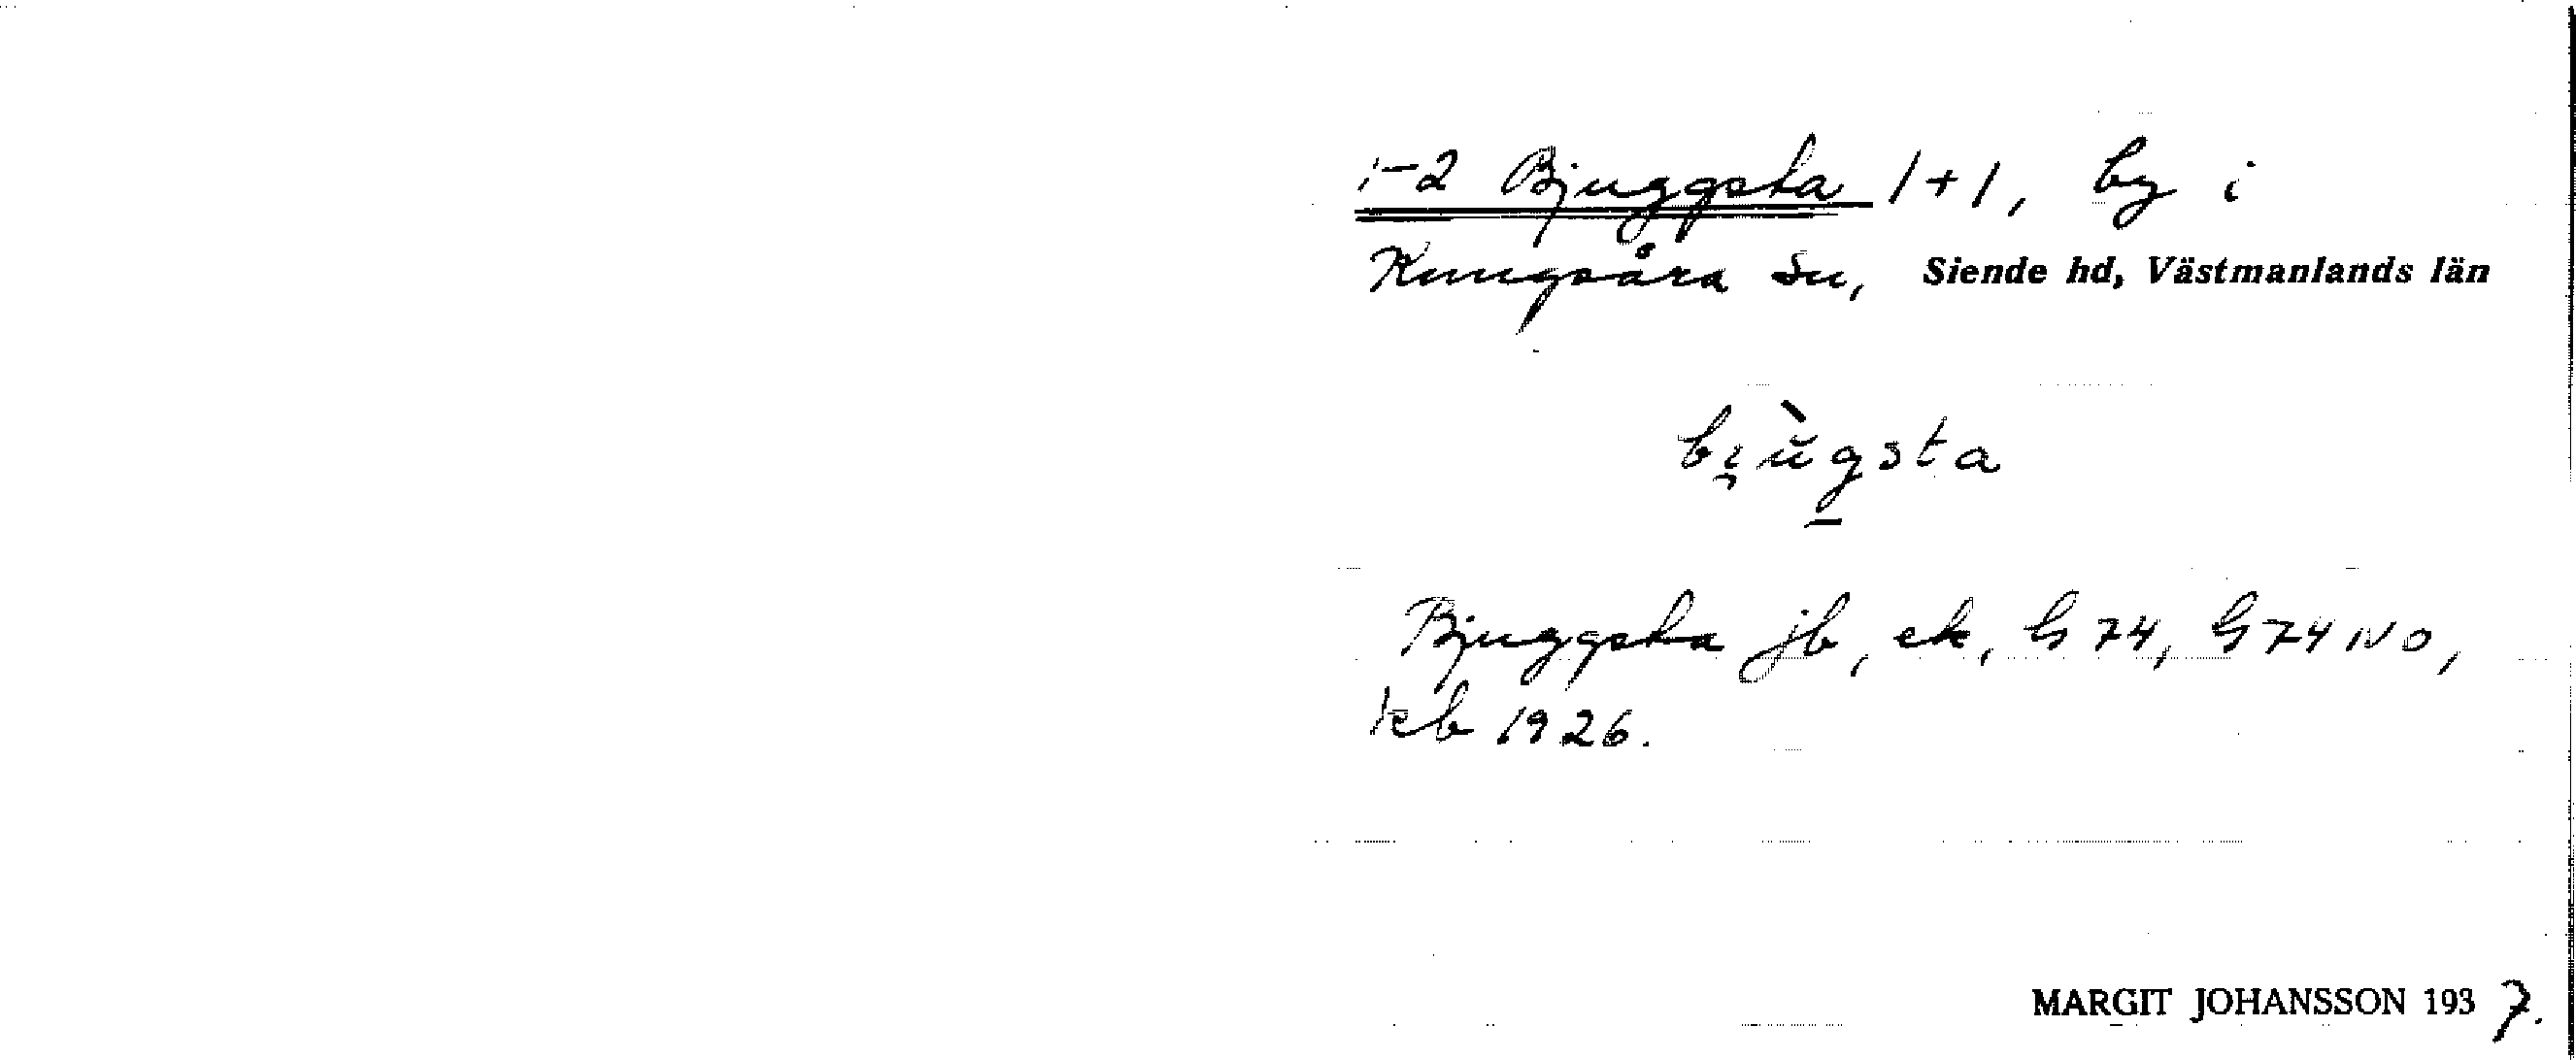 1-2 Bjuggsta 1+1, by i
Kungsåra sn, Siende hd, Västmanlands län
bi̯ŭ̀gsta
Bjuggsta jb, ek, G 74, G 74 NO,
kb 1926.
MARGIT JOHANSSON 1937.